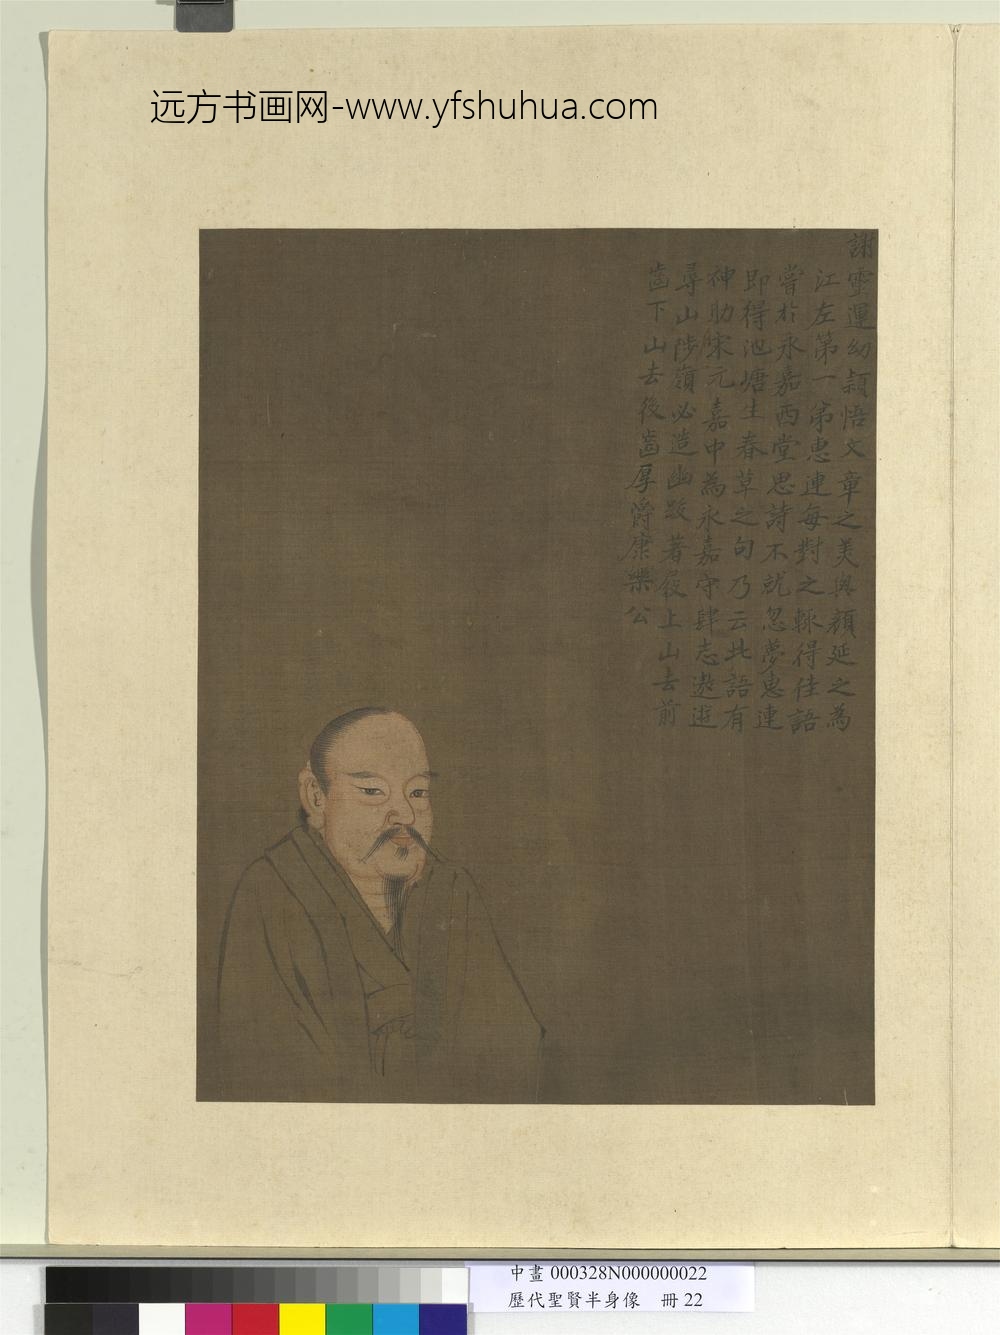 远方书画网-www.yfshuhua.com
謝靈運幼穎悟文章之美與顏延之為
江左第一弟惠連每對之輒得佳語
嘗於永嘉西堂思詩不就忽夢惠連
即得池塘生春草之句乃云此語有
神助宋元嘉中為永嘉守肆志遨遊
尋山陟嶺必造幽峻著屐上山去前
齒下山去後齒厚爵康樂公
中畫 000328N000000022
歷代聖賢半身像 冊 22